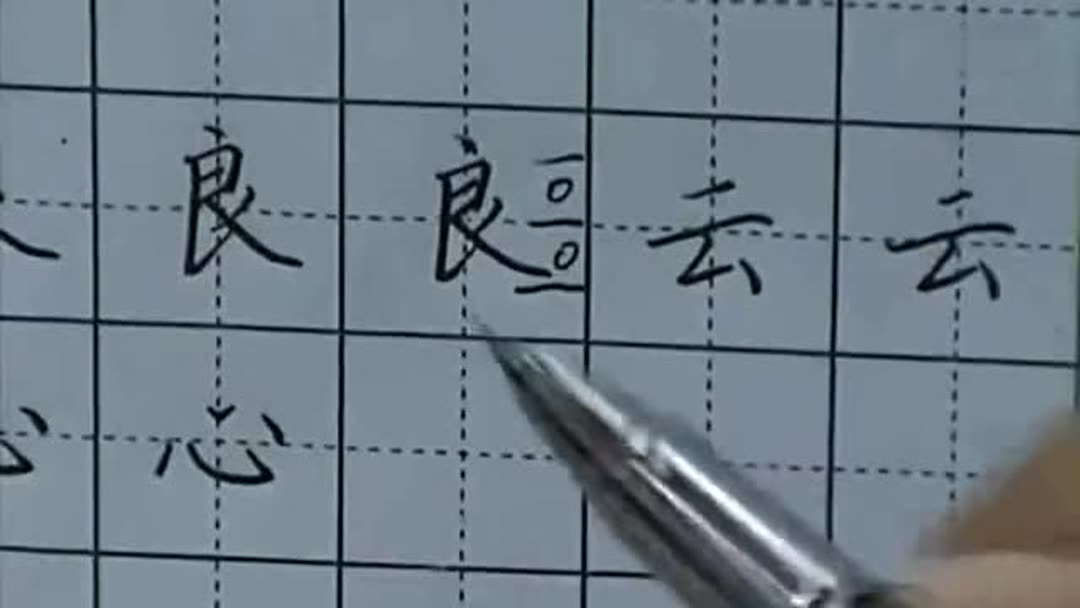 良 良 云 云
心 心